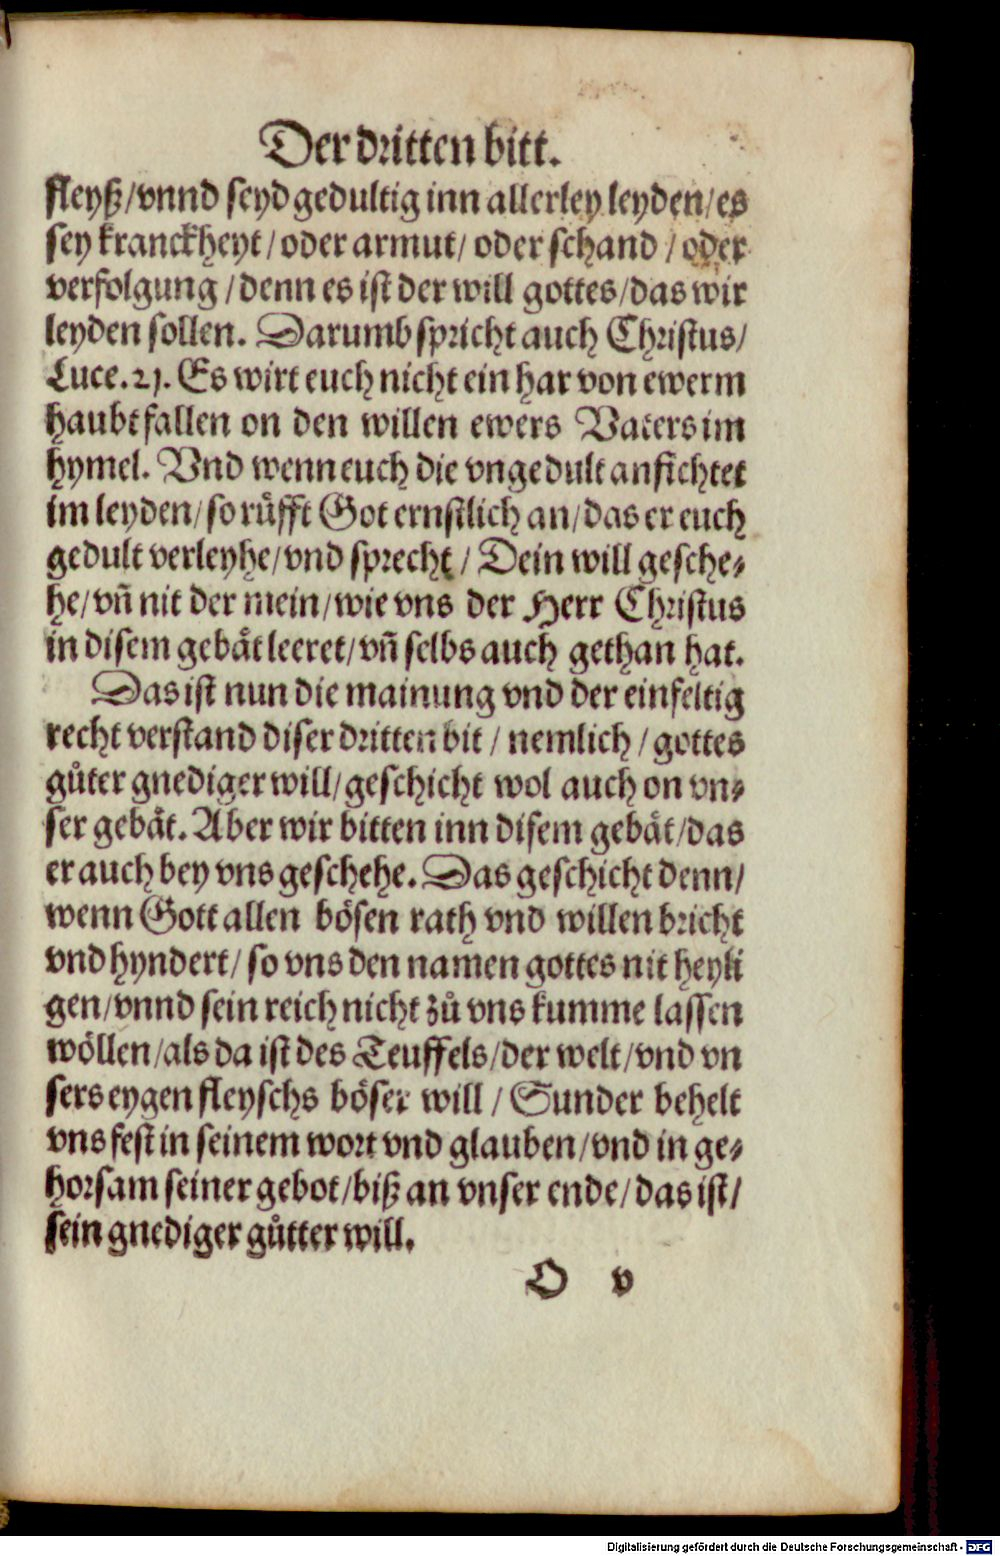 Der dritten bitt.
fleyß/vnnd seyd gedultig inn allerley leyden/es
sey kranckheyt/oder armut/ oder schand /oder
verfolgung/denn es ist der will gottes/das wir
leyden sollen. Darumb spricht auch Christus/
Luce.21. Es wirt euch nicht ein har von ewerm
haubt fallen on den willen ewers Vaters im
hymel. Vnd wenn euch die vngedult anfichtet
im leyden/so růfft Got ernstlich an/das er euch
gedult verleyhe/vnd sprecht/ Dein will gesche⸗
he/vñ nit der mein/wie vns der Herr Christus
in disem gebät leeret/vñ selbs auch gethan hat.
Das ist nun die mainung vnd der einfeltig
recht verstand diser dritten bit/ nemlich/gottes
gůter gnediger will/geschicht wol auch on vn⸗
ser gebät. Aber wir bitten inn disem gebät/das
er auch bey vns geschehe. Das geschicht denn/
wenn Gott allen bösen rath vnd willen bricht
vnd hyndert/ so vns den namen gottes nit heyli
gen/vnnd sein reich nicht zů vns kumme lassen
wöllen/als da ist des Teuffels/der welt/vnd vn
sers eygen fleyschs böser will/ Sunder behelt
vns fest in seinem wort vnd glauben/vnd in ge⸗
horsam seiner gebot/biß an vnser ende/das ist/
sein gnediger gůtter will.
O v
Digitalisierung gefördert durch die Deutsche Forschungsgemeinschaft - DFG